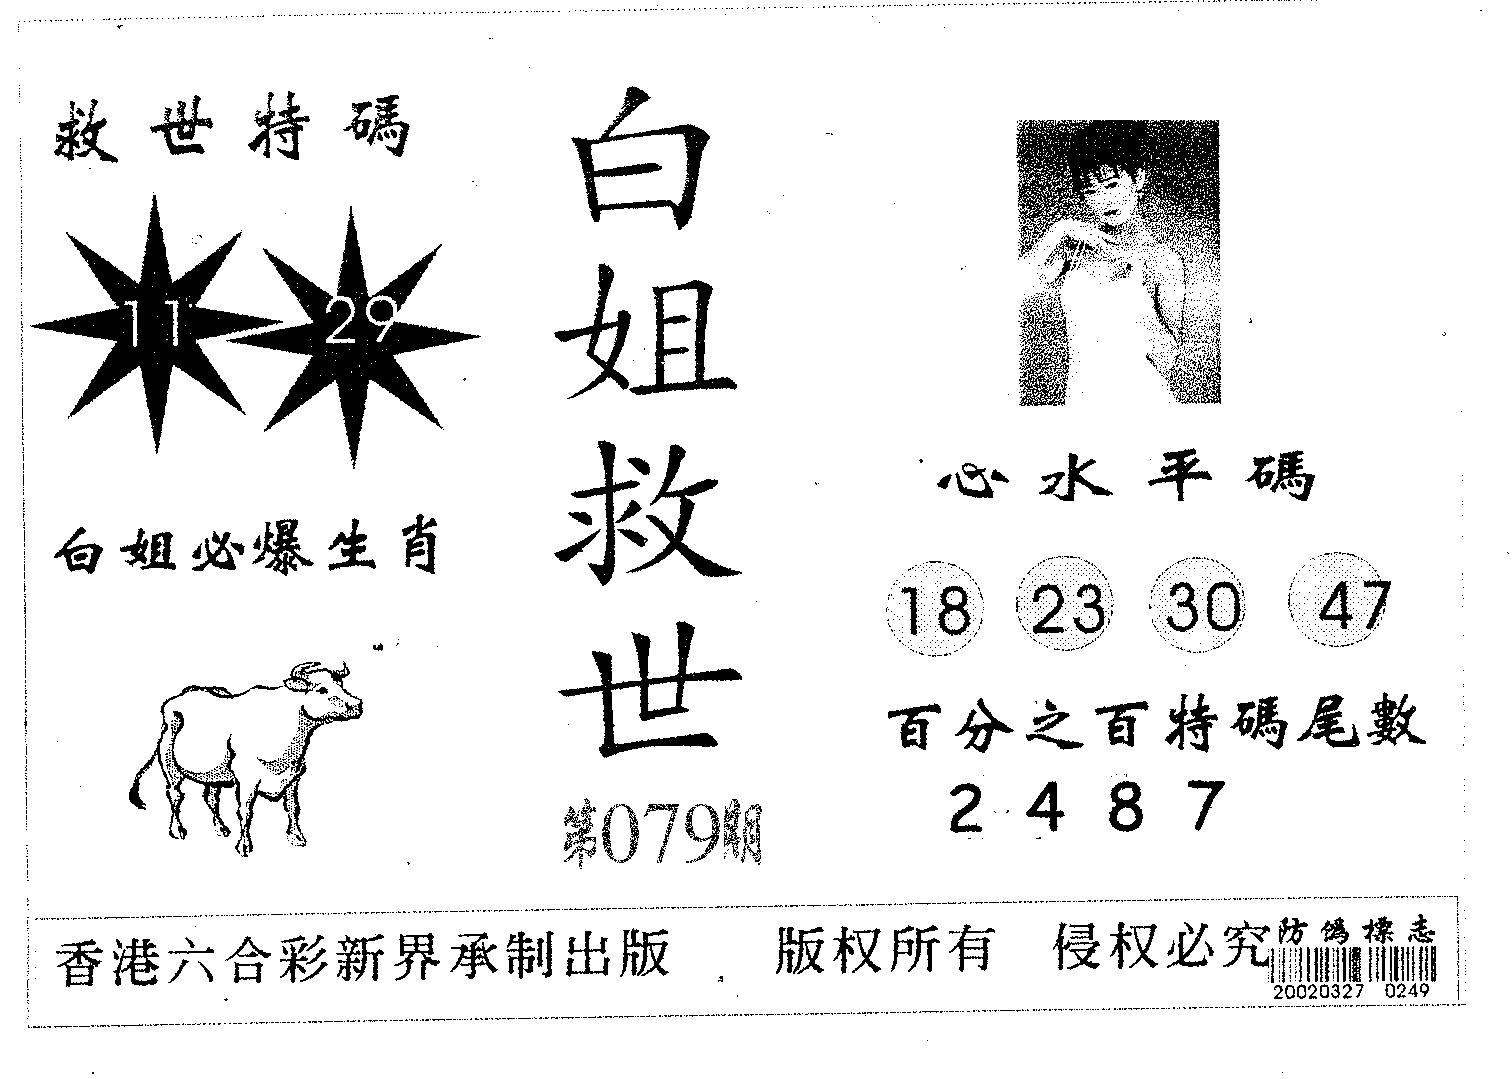 救世特碼
11 29
白姐必爆生肖
白姐救世
第079期
心水平碼
18 23 30 47
百分之百特碼尾數
2 4 8 7
香港六合彩新界承制出版 版权所有 侵权必究
防偽標志
20020327 0249